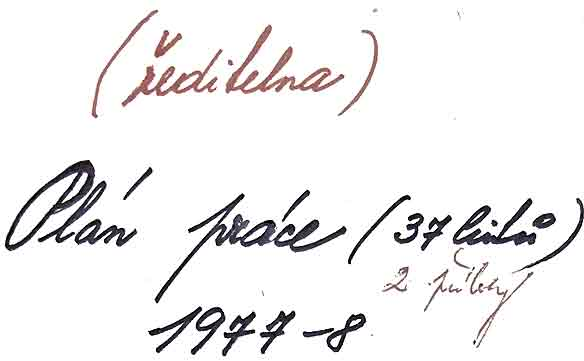 (ředitelna)
Plán práce (37 listů)
2 přílohy
1977-8